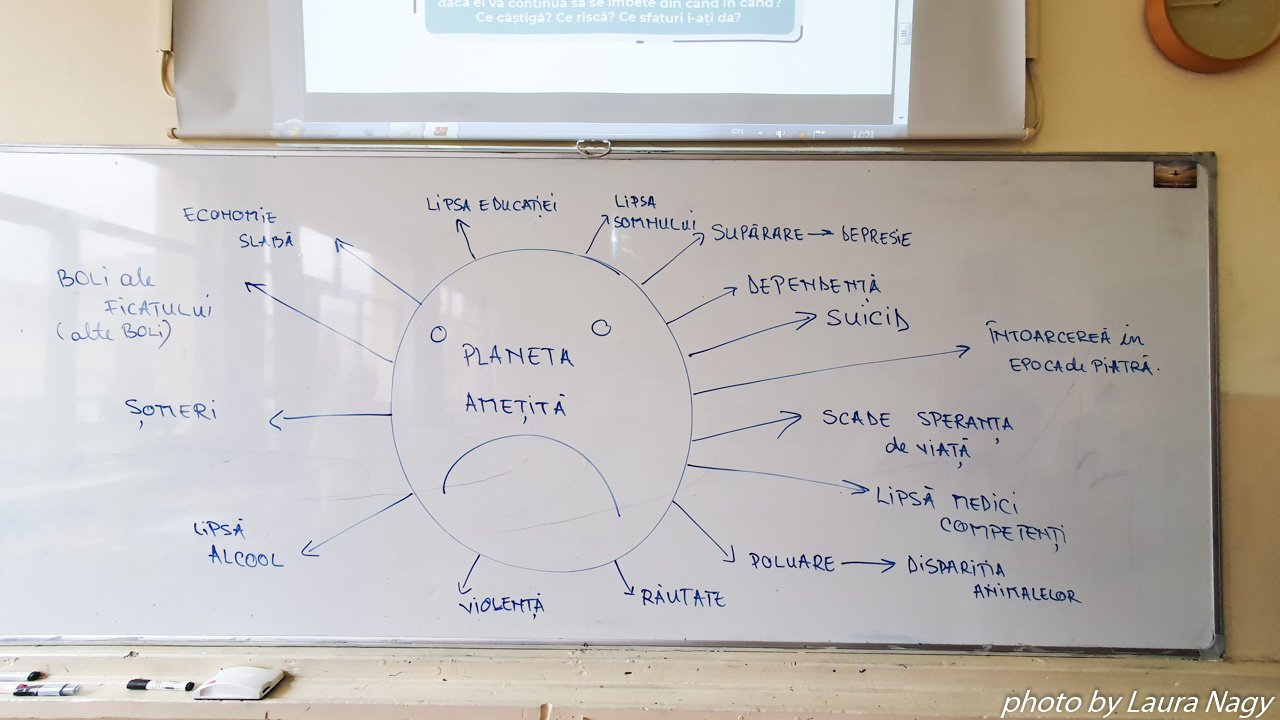 dacă el va continua să se îmbete din când în când?
Ce câștigă? Ce riscă? Ce sfaturi i-ați da?
EN
12:51
ECONOMIE
SLABĂ
LIPSA EDUCAȚIEI
LIPSA
SOMNULUI
SUPĂRARE → DEPRESIE
BOLI ale
FICATULUI
(alte BOLI)
DEPENDENȚĂ
SUICID
ÎNTOARCEREA în
EPOCA de PIATRĂ.
PLANETA
AMEȚITĂ
ȘOMERI
SCADE SPERANȚA
de VIAȚĂ
LIPSĂ MEDICI
COMPETENȚI
LIPSĂ
ALCOOL
POLUARE → DISPARIȚIA
ANIMALELOR
VIOLENȚĂ
RĂUTATE
photo by Laura Nagy